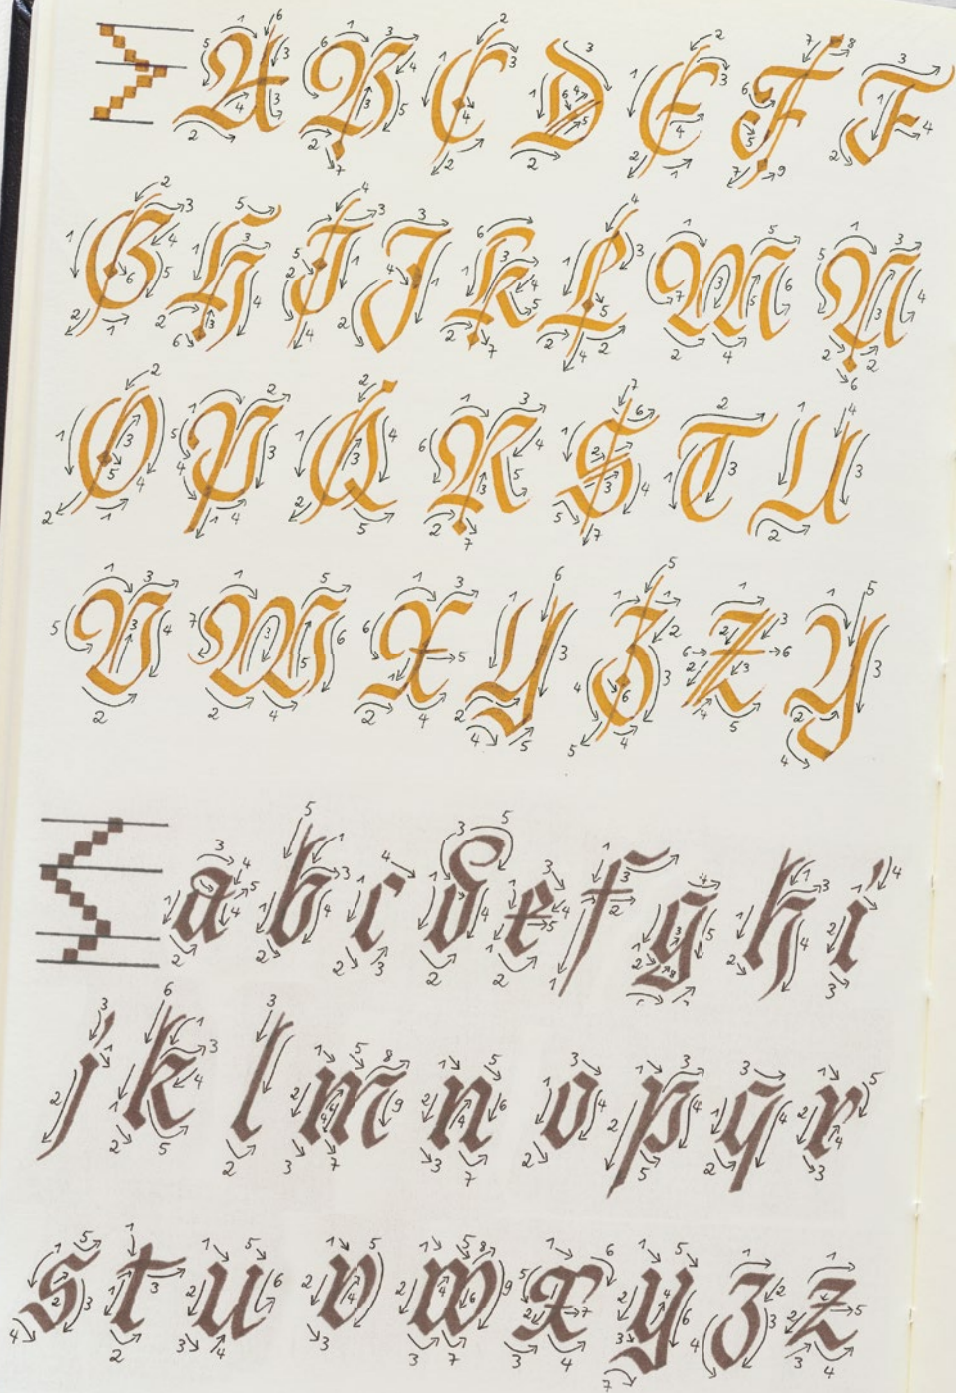 A B C D E F F
G H I J K L M N
O P Q R S T U
V W X Y Z Z Y
a b c d e f g h i
j k l m n o p q r
s t u v w x y z z